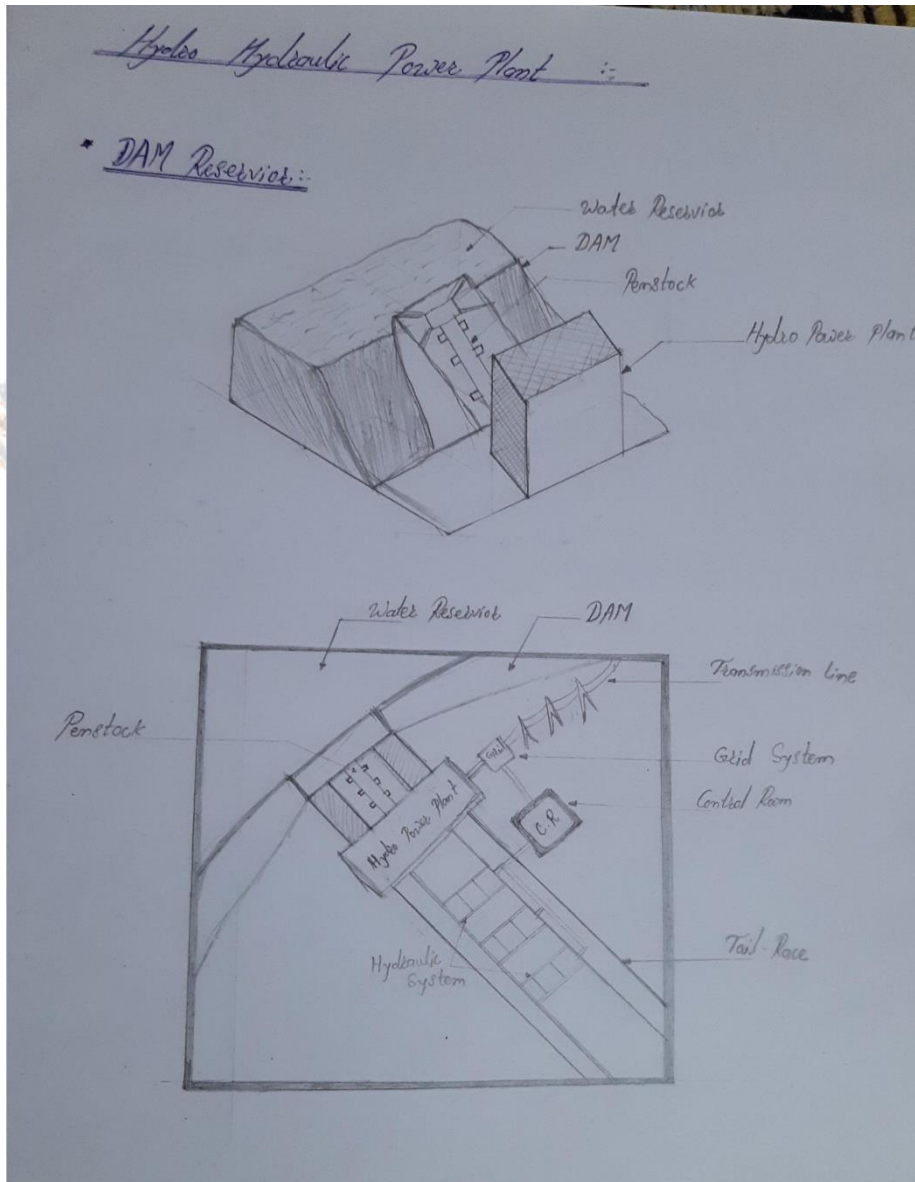 Hydro Hydraulic Power Plant :-
* DAM Reservior:-
Water Reservior
DAM
Penstock
Hydro Power Plant
Water Reservior
DAM
Transmission line
Penstock
Grid System
Control Room
Grid
C.R
Hydro Power Plant
Hydraulic
System
Tail-Race